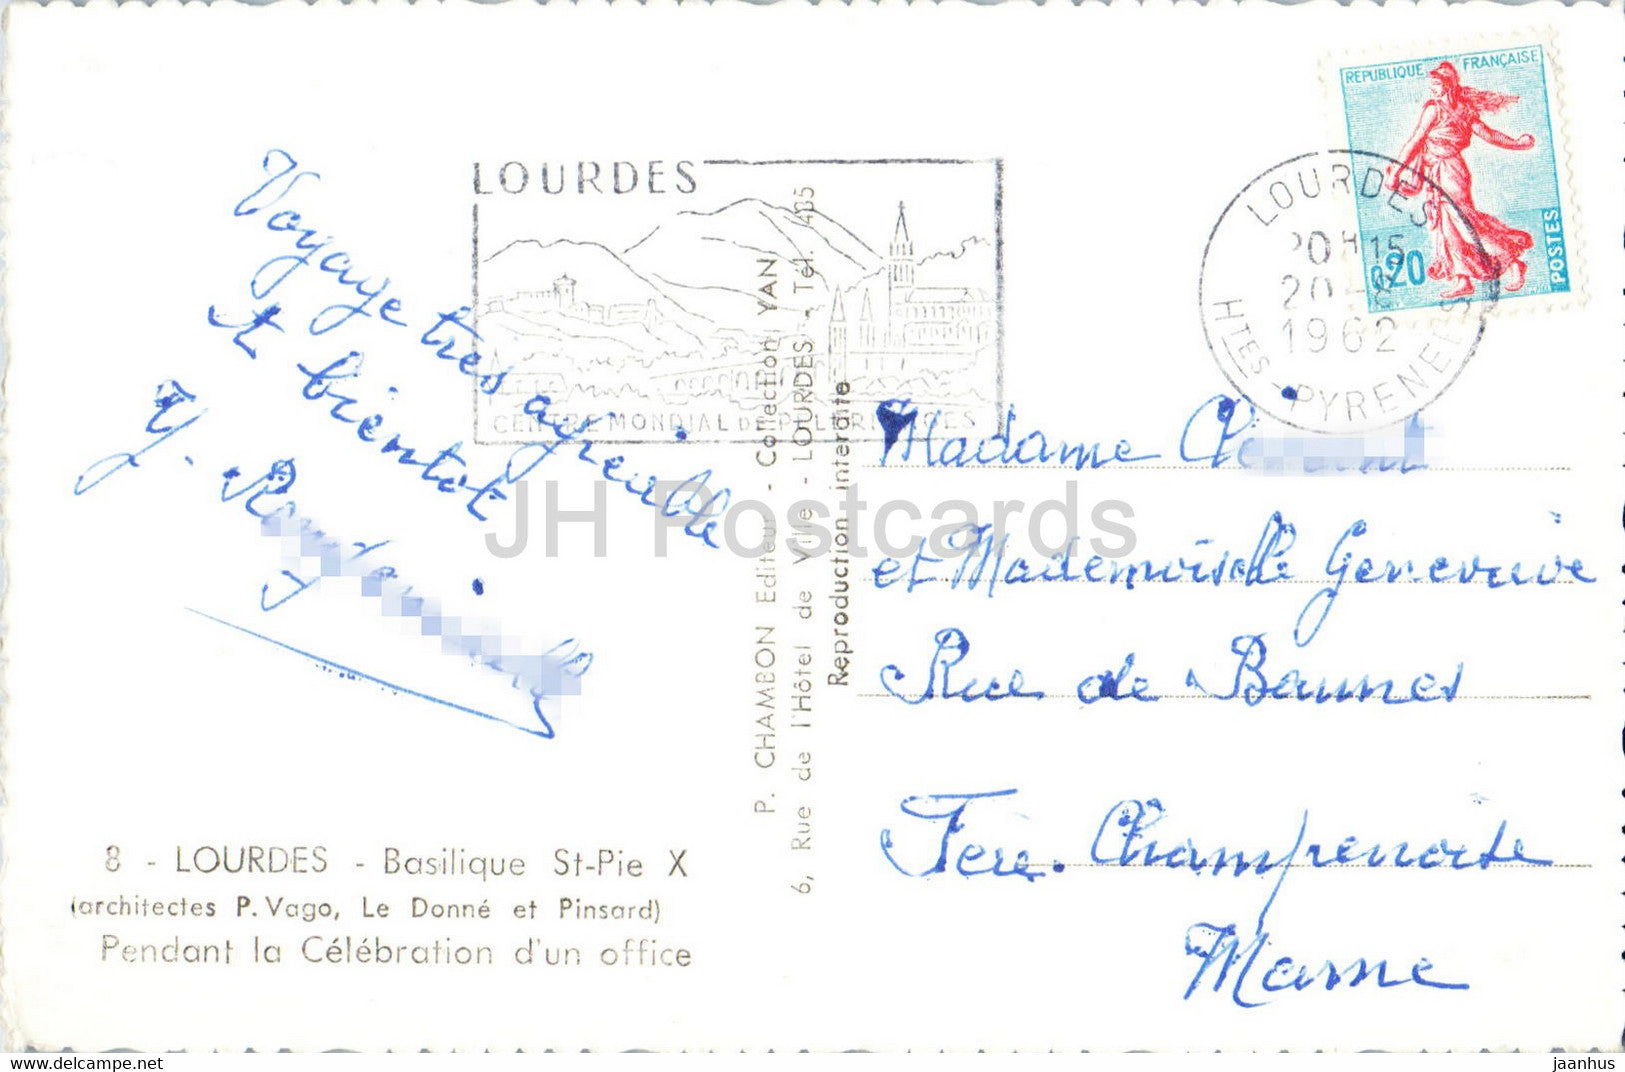 LOURDES
CENTRE MONDIAL DE PELERINAGES
REPUBLIQUE FRANÇAISE
0,20
POSTES
LOURDES
20H15
1962
HTES-PYRENEES
Voyage très agréable
et bientot
Y.
Madame
et Mademoiselle Genevieve
Rue de
Fère. Champenoise
Marne
P. CHAMBON Editeur - Collection YAN
6, Rue de l'Hôtel de Ville - LOURDES - Tél. 435
Reproduction interdite
8 - LOURDES - Basilique St-Pie X
(architectes P. Vago, Le Donné et Pinsard)
Pendant la Célébration d'un office
JH Postcards
hippostcard.com
jaanhus